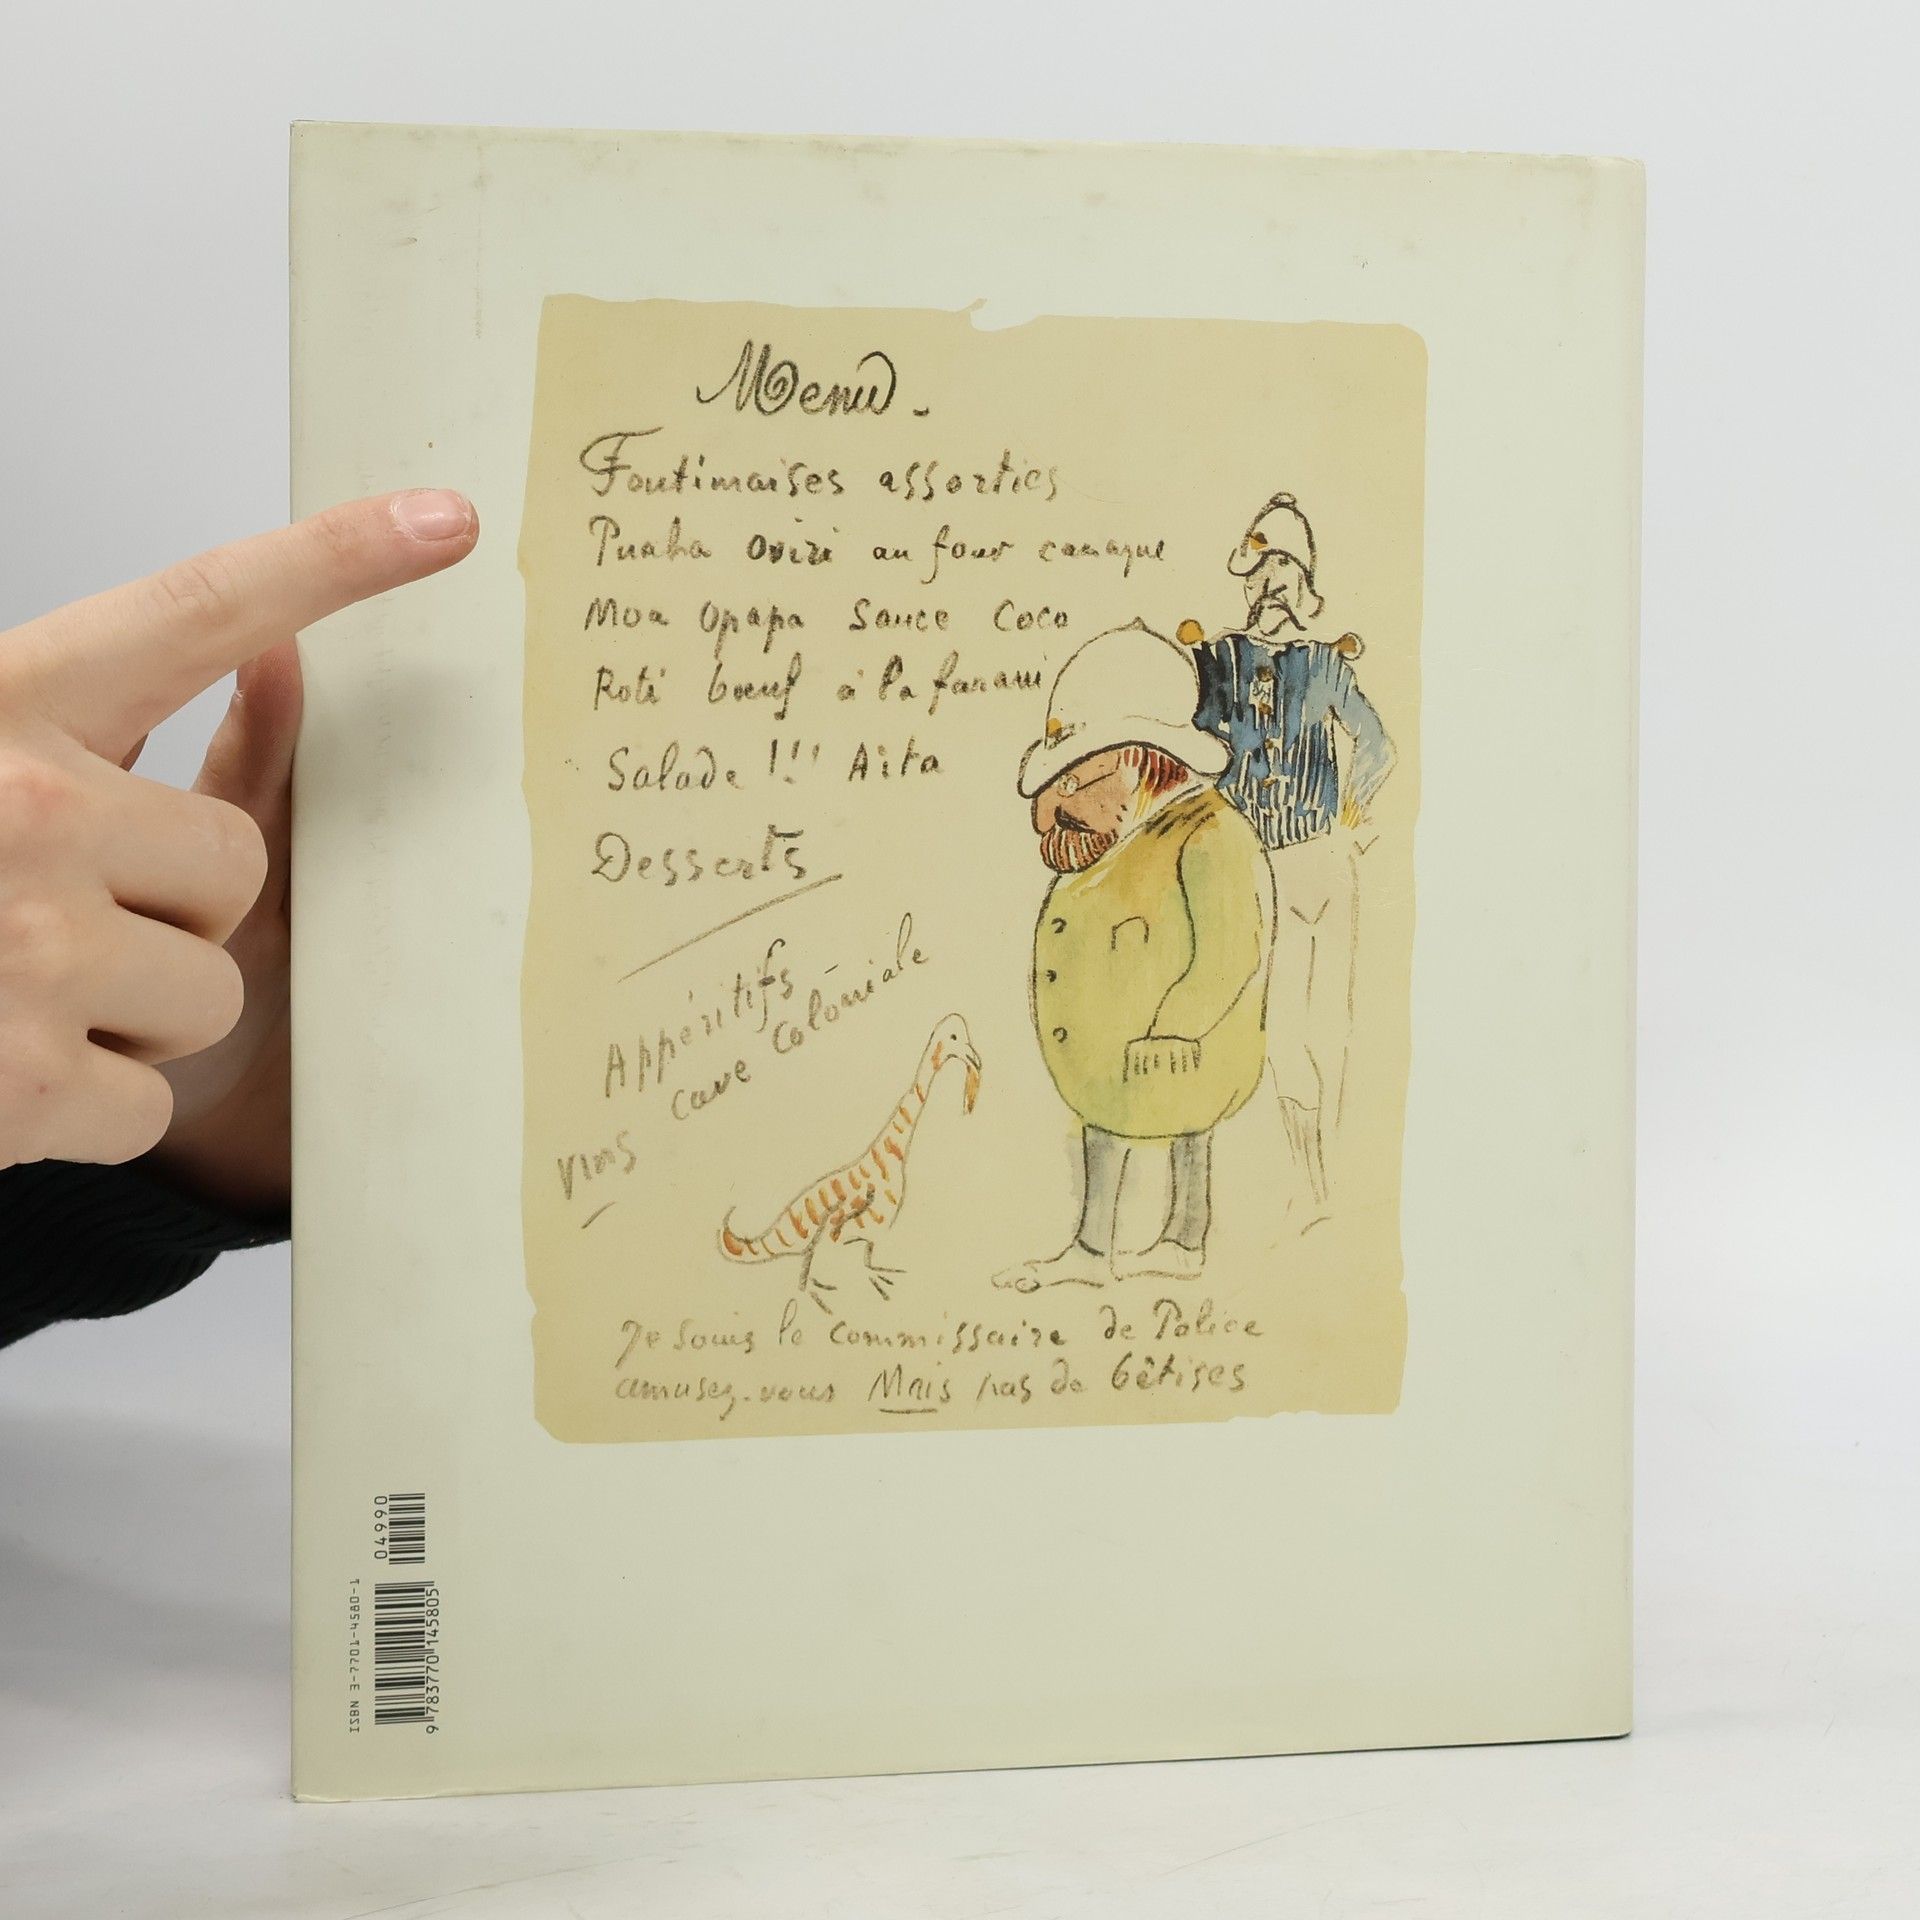 Menu -
Foutimaises assorties
Puaha oviri au four canaque
Moa Opapa Sauce Coco
Roti bœuf à la farani
Salade !!! Aita
Desserts
Appéritifs
Vins cave Coloniale
Je souis le commissaire de Police
amusez-vous Mais pas de bêtises
ISBN 3-7701-4580-1
9 783770 145805
04990